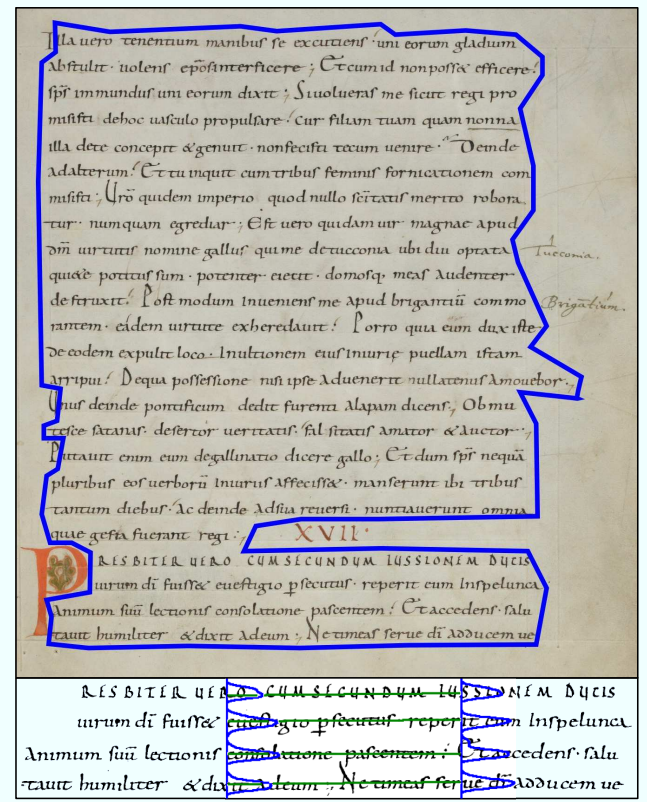 Illa uero tenentium manibus se excutiens · uni eorum gladium
abstulit · uolens ep̄os interficere ; Et cum id non posset efficere ·
sp̄s inmundus uni eorum dixit ; Si uolueras me sicut regi pro
misisti de hoc uasculo propulsare · Cur filiam tuam quam nonna
illa de te concepit & genuit · non fecisti tecum uenire · Deinde
adalterum · Et tu inquit cum tribus feminis fornicationem com
misisti ; Uro quidem imperio quod nullo sc̄itatis merito robora
tur · numquam egrediar ; Est uero quidam uir magnae apud
dm̄ uirtutis nomine gallus qui me de tucconia ubi diu optata
quiete potitus sum · potenter eiecit · domosq; meas audenter
destruxit · Post modum inueniens me apud brigantiū commo
rantem · eadem uirtute exheredauit · Porro quia eum dux iste
de eodem expulit loco · In ultionem eius iniurię puellam istam
arripui · De qua possessione nisi ipse aduenerit nullatenus amouebor ·,
Unus deinde pontificum dedit furenti alapam dicens ·, Obmu
tesce satanas · desertor ueritatis · falsitatis amator & auctor ·,
Putauit enim eum de gallinatio dicere gallo ; Et dum sp̄s nequā
pluribus eos uerborū iniuriis affecisset · manserunt ibi tribus
tantum diebus · Ac deinde ad sua reuersi · nuntiauerunt omnia
quae gesta fuerant regi ·,
XVII ·
P RESBITER UERO CUM SECUNDUM IUSSIONEM DUCIS
uirum dī fuisset euestigio p̱secutus · reperit eum In spelunca
Animum suū lectionis consolatione pascentem · Et accedens · salu
tauit humiliter & dixit ad eum ·, Ne timeas serue dī adducem ue
Tucconia.
Brigātium.
RESBITER UERO CUM SECUNDUM IUSSIONEM DUCIS
uirum dī fuisset euestigio p̱secutus · reperit eum In spelunca
Animum suū lectionis consolatione pascentem · Et accedens · salu
tauit humiliter & dixit ad eum ·, Ne timeas serue dī adducem ue